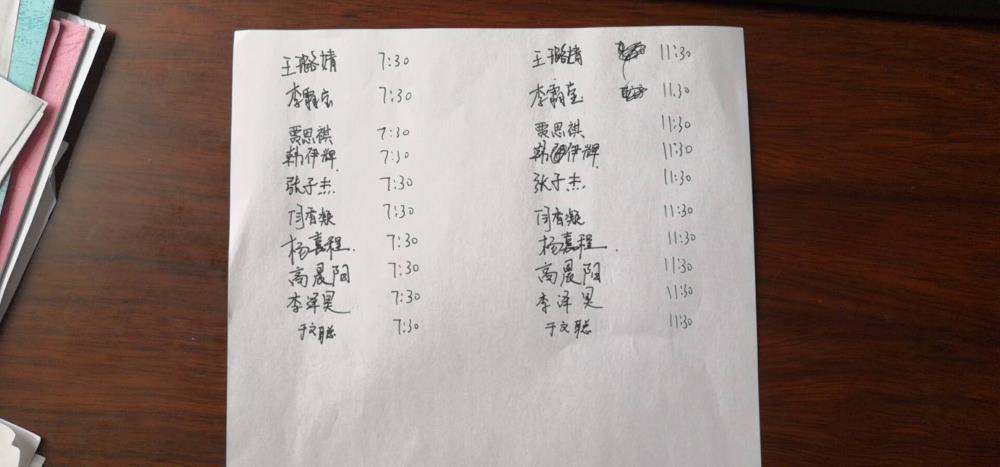 王璐婧 7:30 王璐婧 11:30
李霸宝 7:30 李霸宝 11.30
贾思祺 7:30 贾思祺 11:30
韩伊辉 7:30 韩伊辉 11:30
张子杰 7:30 张子杰 11:30
闫香凝 7:30 闫香凝 11:30
杨嘉程. 7:30 杨嘉程. 11:30
高晨阳 7:30 高晨阳 11:30
李泽昊 7:30 李泽昊 11:30
于文聪 7:30 于文聪 11:30